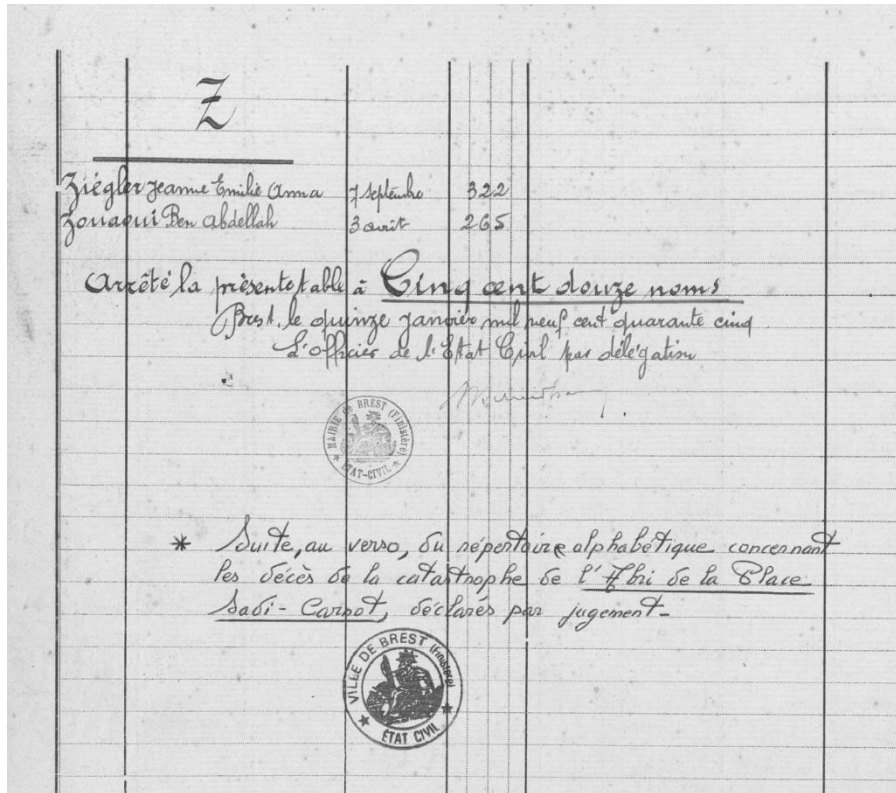 Z
Ziégler Jeanne Emilie Anna 7 Septembre 322
Zouaoui Ben Abdellah 3 avril 265
Arrêté la présente table à Cinq cent douze noms
Brest, le quinze janvier mil neuf cent quarante cinq
L'officier de l'Etat Civil par délégation
MAIRIE DE BREST (Finistère)
ETAT-CIVIL
* Suite, au verso, du répertoire alphabétique concernant
les décès de la catastrophe de l'Abri de la Place
Sadi-Carnot, déclarés par jugement-
VILLE DE BREST (Finistère)
ÉTAT CIVIL